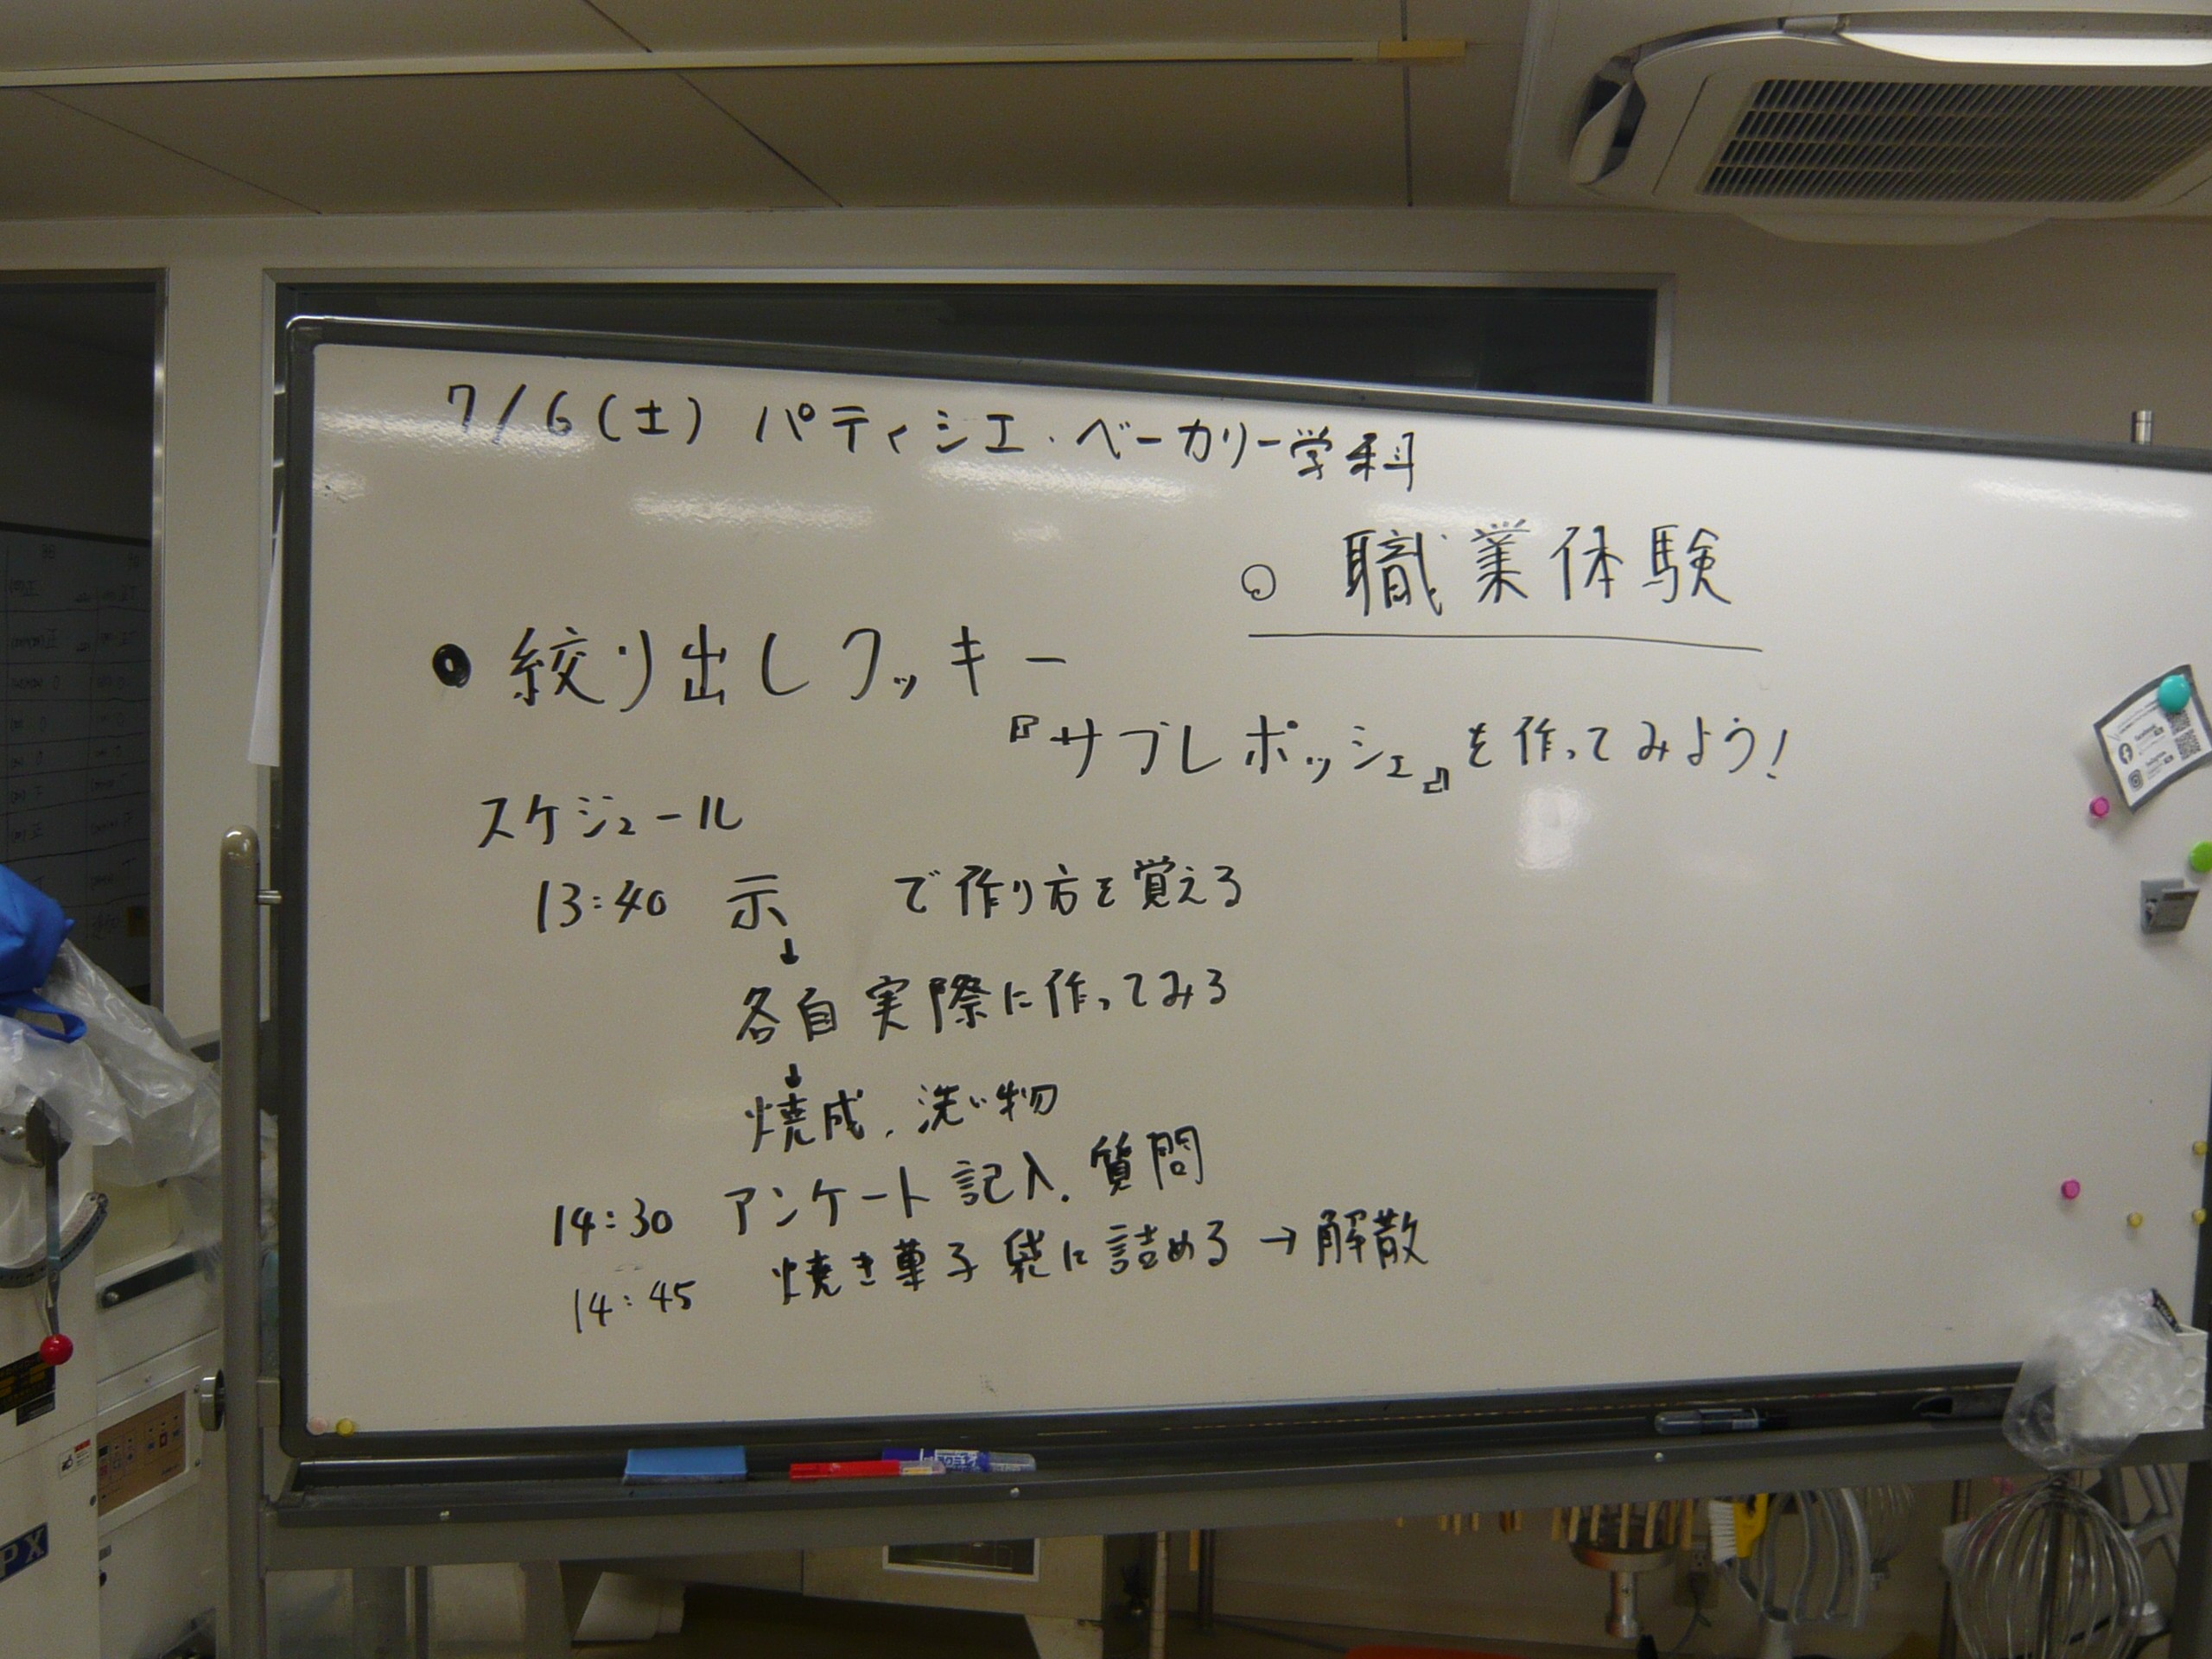 7/6(土) パティシエ・ベーカリー学科
○ 職業体験
● 絞り出しクッキー
『サブレポッシェ』を作ってみよう!
スケジュール
13:40 示 で作り方を覚える
↓
各自 実際に作ってみる
↓
焼成、洗い物
14:30 アンケート記入、質問
14:45 焼き菓子 袋に詰める → 解散
PX